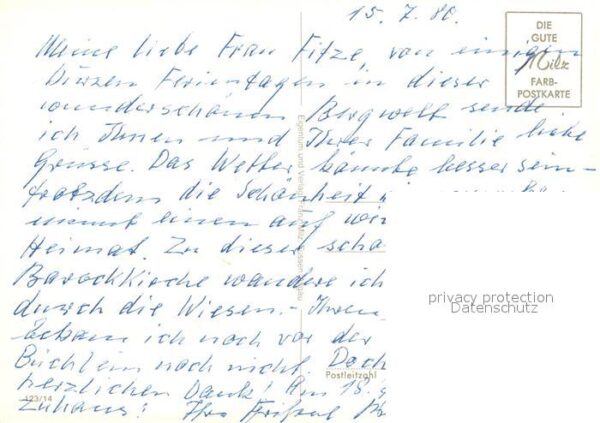 15. 7. 80.
DIE
GUTE
Milz
FARB-
POSTKARTE
Meine liebe Frau Fitze, von einigen
kurzen Ferientagen in dieser
wunderschönen Bergwelt sende
ich Ihnen und Ihrer Familie liebe
Grüsse. Das Wetter könnte besser sein -
trotzdem die Schönheit
nimmt einen auf
Heimat. Zu dieser
Barockkirche wandere ich
durch die Wiesen. - Ihren
bekam ich noch vor der
Büchlein noch nicht. Doch
herzlichen Dank! Am 18.
Zuhaus! Ihre
Eigentum und Verlag
Postleitzahl
123/14
privacy protection
Datenschutz